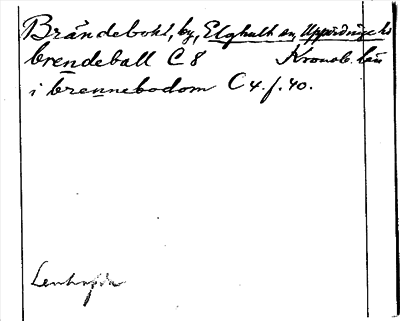 Brändebohl, by, Elghult sn, Uppvidinge hd
brendeball C 8 Kronob. län
i brennebodom C 4. f. 40.
Lenhofda